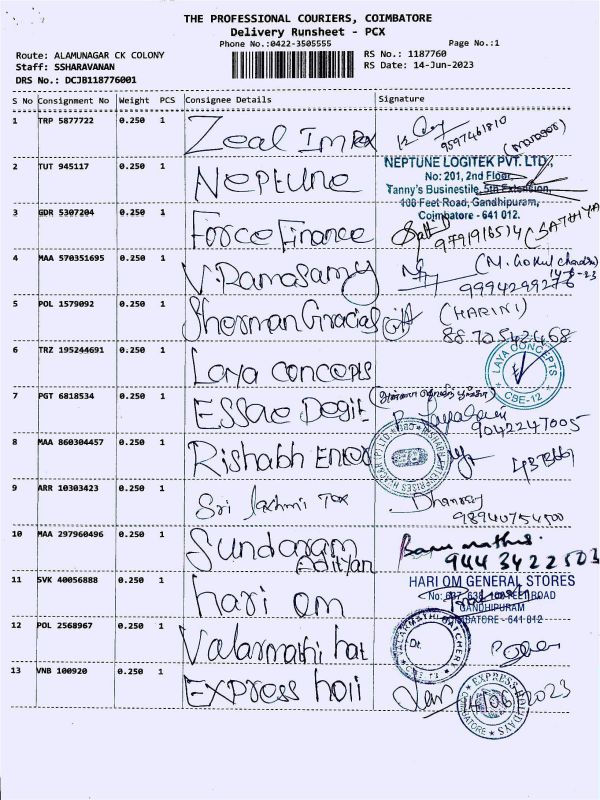 THE PROFESSIONAL COURIERS, COIMBATORE
Delivery Runsheet - PCX
Phone No.:0422-3505555 Page No.:1
Route: ALAMUNAGAR CK COLONY RS No.: 1187760
Staff: SSHARAVANAN RS Date: 14-Jun-2023
DRS No.: DCJB118776001
S No Consignment No Weight PCS Consignee Details Signature
1 TRP 5877722 0.250 1 Zeal Impex 9597461810
(Manager)
NEPTUNE LOGITEK PVT. LTD.
2 TUT 945117 0.250 1 Neptune No: 201, 2nd Floor,
Tanny's Businestile, 5th Extension,
100 Feet Road, Gandhipuram,
Coimbatore - 641 012.
3 GDR 5307204 0.250 1 Force Finance (SATHIYA
9791916514
4 MAA 570351695 0.250 1 V. Ramasamy (M. Gokul Chandru)
14-6-23
9994299276
5 POL 1579092 0.250 1 Sherman Gracias gift (HARINI)
8870542468
6 TRZ 195244691 0.250 1 Laya concepts LAYA CONCEPTS CBE-12
7 PGT 6818534 0.250 1 ESSAE Degit
9042247005
8 MAA 860304457 0.250 1 Rishabh Enter
9 ARR 10303423 0.250 1 Sri laxmi Tex Dhanraj
98940754500
10 MAA 297960496 0.250 1 Sundaram
Adityan 9443422503
11 SVK 40056888 0.250 1 hari om HARI OM GENERAL STORES
100 FEET ROAD
GANDHIPURAM
COIMBATORE - 641 012
12 POL 2568967 0.250 1 Valarmathi hat VALARMATHI HATCHERY Dt. CBE-12
13 VNB 100920 0.250 1 Express holi EXPRESS HOLIDAYS COIMBATORE
14/06/2023